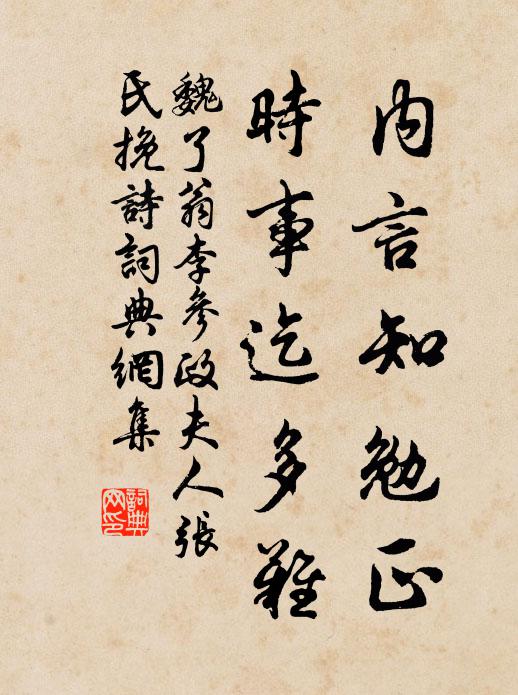 内言知勉正
時事迄多難
魏了翁李參政夫人張
氏挽詩詞典網集
詞典
网印